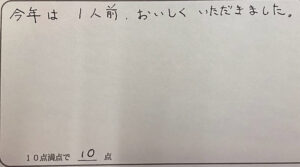 今年は 1人前、おいしく いただきました。
10点満点で 10 点